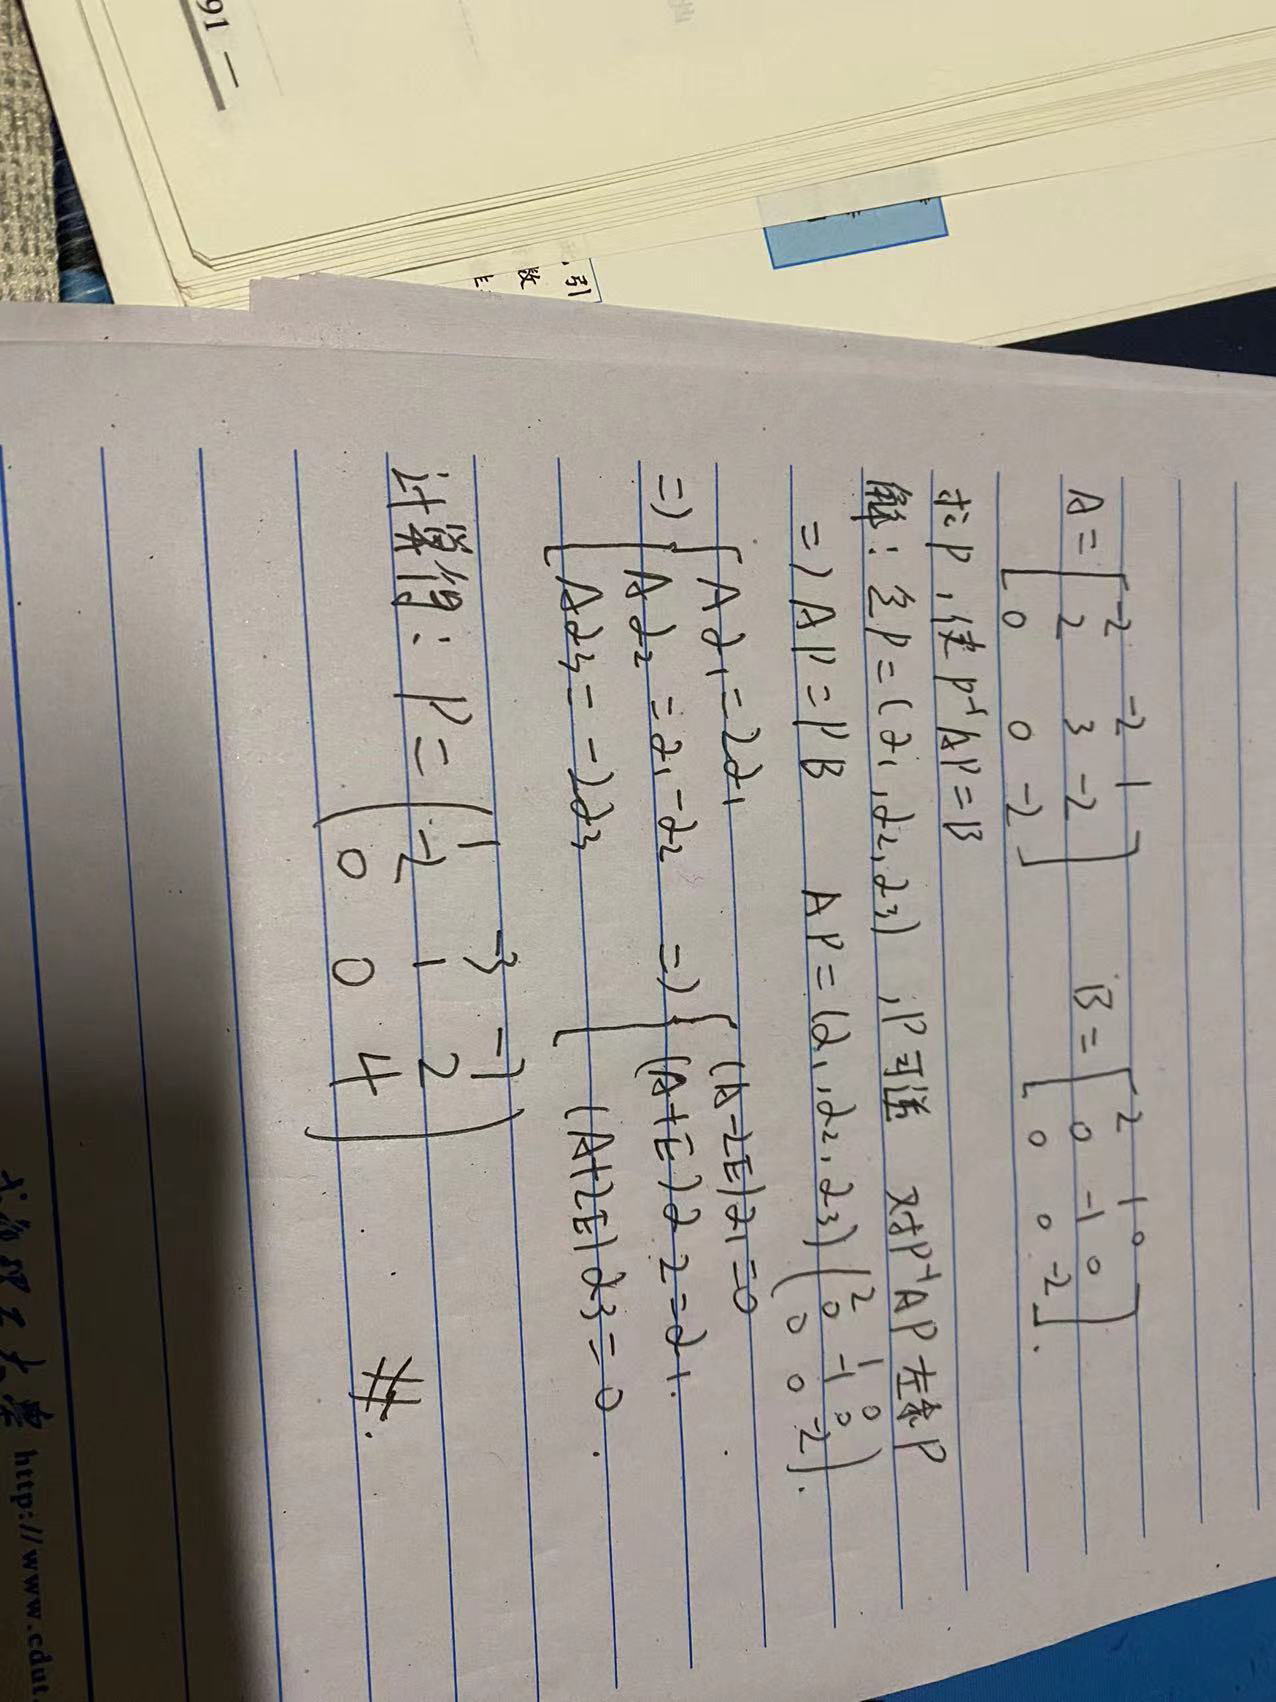 91 —
引
数
A = [-2 -2 1
2 3 -2
0 0 -2]
B = [2 1 0
0 -1 0
0 0 -2].
求P,使P⁻¹AP=B
解:令P=(α₁,α₂,α₃),P可逆 对P⁻¹AP左乘P
=) AP=PB AP=(α₁,α₂,α₃)(2 1 0
0 -1 0
0 0 -2).
=) { Aα₁=2α₁
Aα₂=α₁-α₂
Aα₃=-2α₃
=) { (A-2E)α₁=0
(A+E)α₂=α₁.
(A+2E)α₃=0.
计算得:P=(1 -3 -1
-2 1 2
0 0 4)
#.
http://www.cdut.